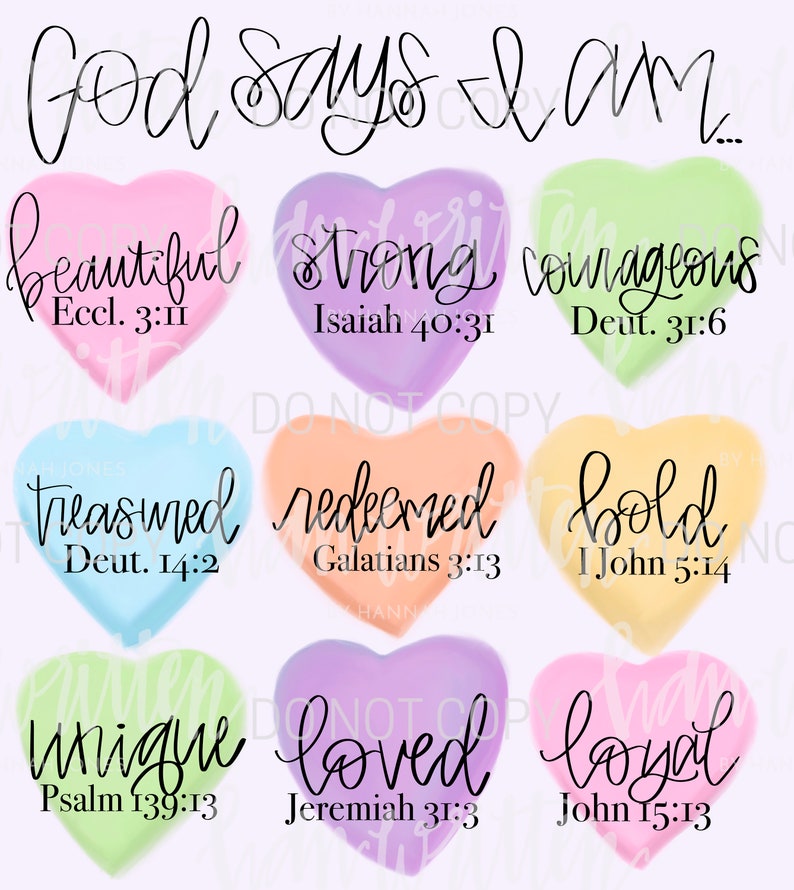 BY HANNAH JONES
God says I am...
DO NOT COPY
beautiful
Eccl. 3:11
strong
Isaiah 40:31
courageous
Deut. 31:6
DO NOT COPY
BY HANNAH JONES
treasured
Deut. 14:2
redeemed
Galatians 3:13
bold
I John 5:14
BY HANNAH JONES
unique
Psalm 139:13
loved
Jeremiah 31:3
loyal
John 15:13
DO NOT COPY